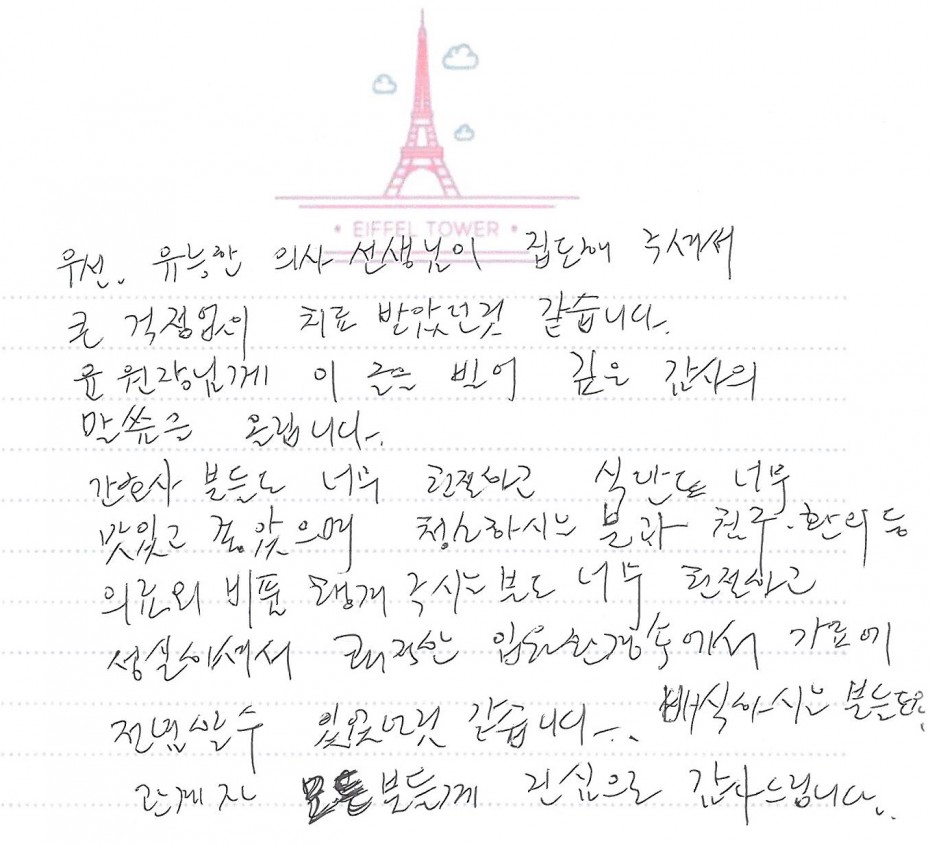 • EIFFEL TOWER •
우선. 유능한 의사 선생님이 집도해 주셔서
큰 걱정없이 치료 받았던것 같습니다.
윤 원장님께 이 글을 빌어 깊은 감사의
말씀을 올립니다.
간호사 분들도 너무 친절하고 식단도 너무
맛있고 좋았으며 청소하시는 분과 침구·환의 등
의료외 비품 챙겨 주시는 분도 너무 친절하고
성실하셔서 쾌적한 입원환경속에서 가료에
전념할수 있었던것 같습니다. 배식하시는 분들도
관계자 분들께 진심으로 감사드립니다.